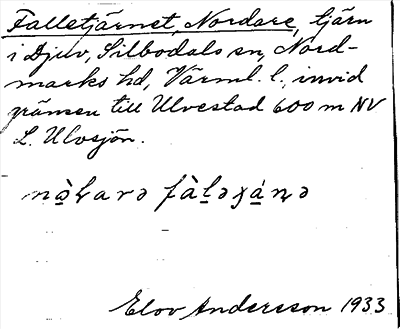 Falletjärnet, Nordare, tjärn
i Djuv, Silbodals sn, Nord-
marks hd, Värml. l., invid
gränsen till Ulvestad 600 m NV
L. Ulvsjön.
Elov Andersson 1933